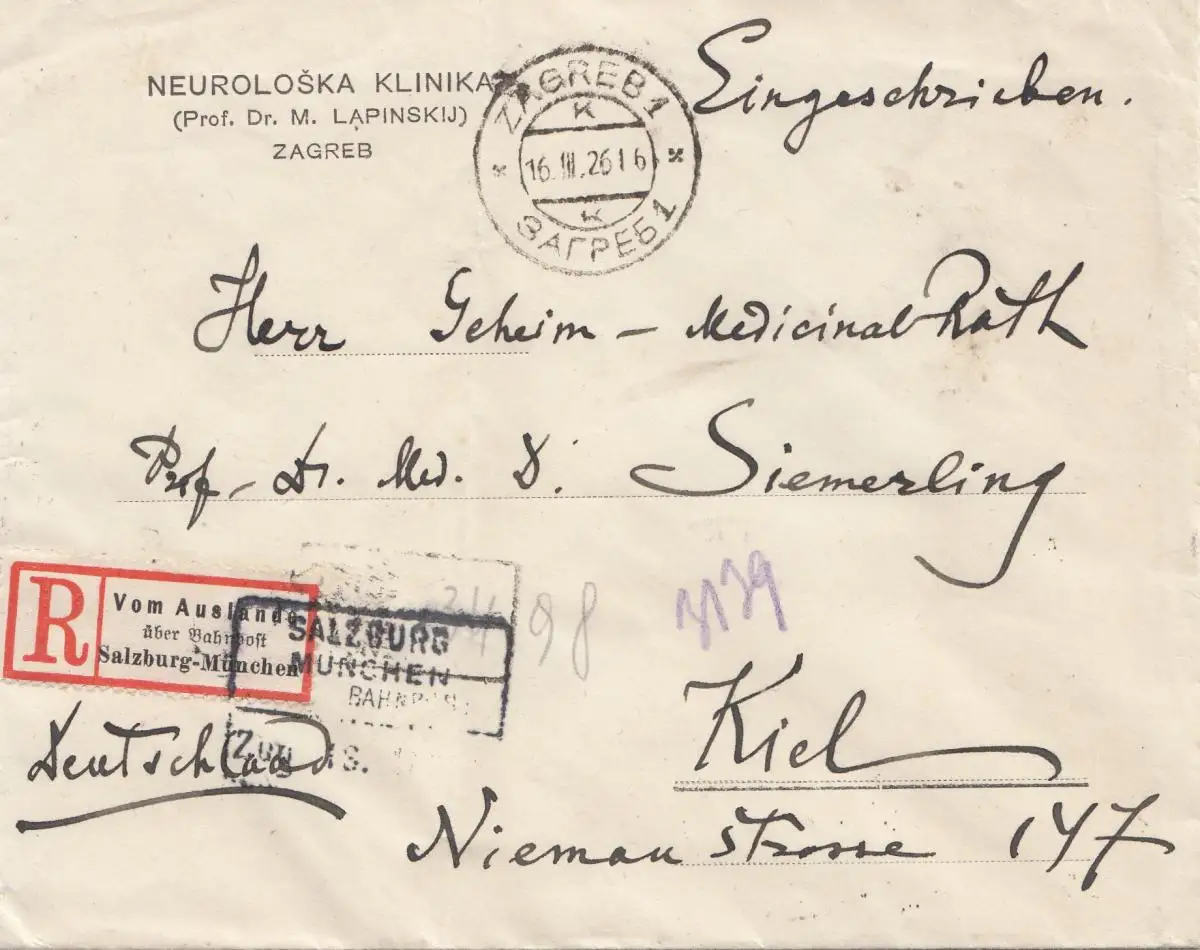 NEUROLOŠKA KLINIKA
(Prof. Dr. M. LAPINSKIJ)
ZAGREB
ZAGREB 1
K
16.III.26 16
K
ЗАГРЕБ 1
Eingeschrieben.
Herr Geheim - Medicinal-Rath
Prof. Dr. Med. D. Siemerling
R
Vom Auslande
über Bahnpost
Salzburg-München
SALZBURG
MÜNCHEN
BAHNPOST
Zug
3498
Kiel
Deutschland
Niemanstrasse 147